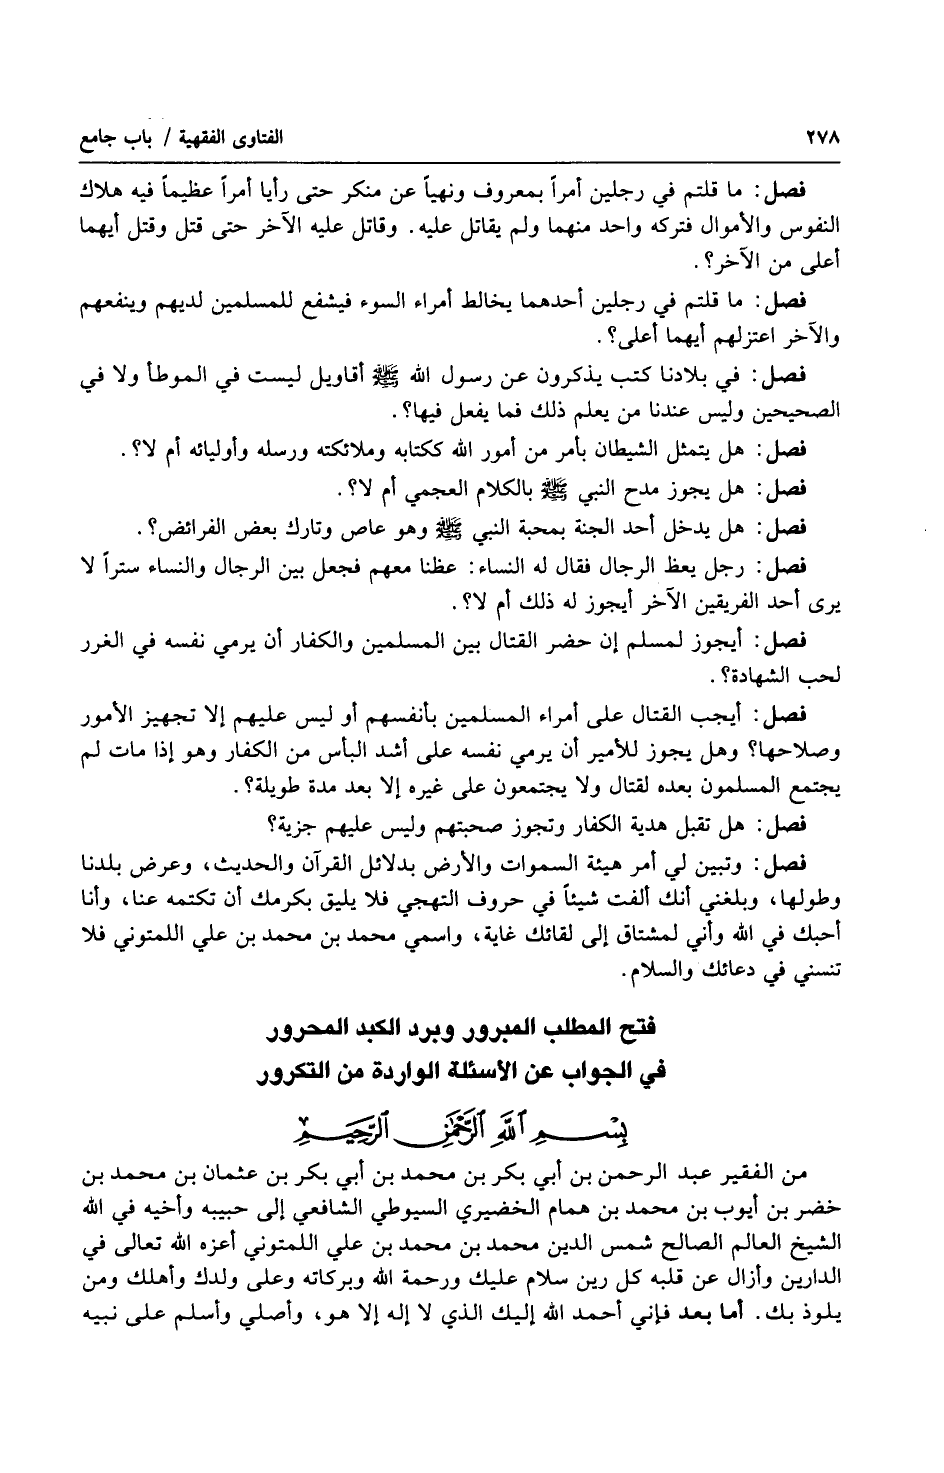 ٢٧٨ الفتاوى الفقهية / باب جامع
فصل: ما قلتم في رجلين أمراً بمعروف ونهياً عن منكر حتى رأيا أمراً عظيماً فيه هلاك
النفوس والأموال فتركه واحد منهما ولم يقاتل عليه. وقاتل عليه الآخر حتى قتل وقتل أيهما
أعلى من الآخر؟.
فصل: ما قلتم في رجلين أحدهما يخالط أمراء السوء فيشفع للمسلمين لديهم وينفعهم
والآخر اعتزلهم أيهما أعلى؟.
فصل: في بلادنا كتب يذكرون عن رسول الله ﷺ أقاويل ليست في الموطأ ولا في
الصحيحين وليس عندنا من يعلم ذلك فما يفعل فيها؟.
فصل: هل يتمثل الشيطان بأمر من أمور الله ككتابه وملائكته ورسله وأوليائه أم لا؟.
فصل: هل يجوز مدح النبي ﷺ بالكلام العجمي أم لا؟.
فصل: هل يدخل أحد الجنة بمحبة النبي ﷺ وهو عاص وتارك بعض الفرائض؟.
فصل: رجل يعظ الرجال فقال له النساء: عظنا معهم فجعل بين الرجال والنساء ستراً لا
يرى أحد الفريقين الآخر أيجوز له ذلك أم لا؟.
فصل: أيجوز لمسلم إن حضر القتال بين المسلمين والكفار أن يرمي نفسه في الغرر
لحب الشهادة؟.
فصل: أيجب القتال على أمراء المسلمين بأنفسهم أو ليس عليهم إلا تجهيز الأمور
وصلاحها؟ وهل يجوز للأمير أن يرمي نفسه على أشد البأس من الكفار وهو إذا مات لم
يجتمع المسلمون بعده لقتال ولا يجتمعون على غيره إلا بعد مدة طويلة؟.
فصل: هل تقبل هدية الكفار وتجوز صحبتهم وليس عليهم جزية؟
فصل: وتبين لي أمر هيئة السموات والأرض بدلائل القرآن والحديث، وعرض بلدنا
وطولها، وبلغني أنك ألفت شيئاً في حروف التهجي فلا يليق بكرمك أن تكتمه عنا، وأنا
أحبك في الله وأني لمشتاق إلى لقائك غاية، واسمي محمد بن محمد بن علي اللمتوني فلا
تنسني في دعائك والسلام.
فتح المطلب المبرور وبرد الكبد المحرور
في الجواب عن الأسئلة الواردة من التكرور
بِسْمِ ٱللَّهِ ٱلرَّحْمَٰنِ ٱلرَّحِيمِ
من الفقير عبد الرحمن بن أبي بكر بن محمد بن أبي بكر بن عثمان بن محمد بن
خضر بن أيوب بن محمد بن همام الخضيري السيوطي الشافعي إلى حبيبه وأخيه في الله
الشيخ العالم الصالح شمس الدين محمد بن محمد بن علي اللمتوني أعزه الله تعالى في
الدارين وأزال عن قلبه كل رين سلام عليك ورحمة الله وبركاته وعلى ولدك وأهلك ومن
يلوذ بك. أما بعد فإني أحمد الله إليك الذي لا إله إلا هو، وأصلي وأسلم على نبيه